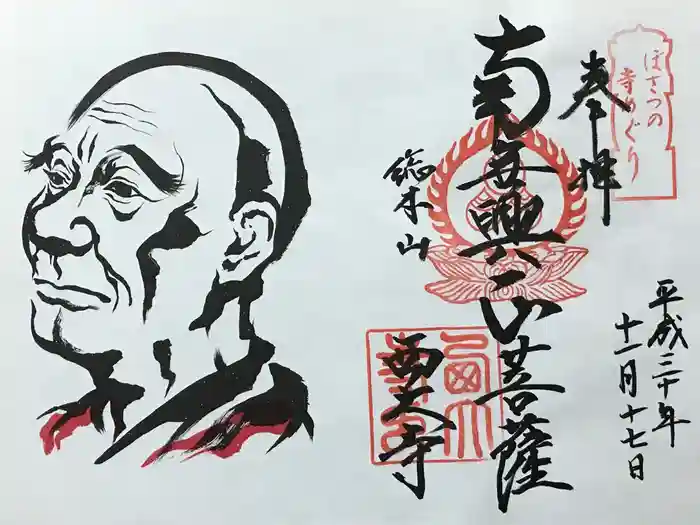 ぼさつの
寺めぐり
奉拝
南無興正菩薩
総本山
西大寺
平成三十年
十一月十七日